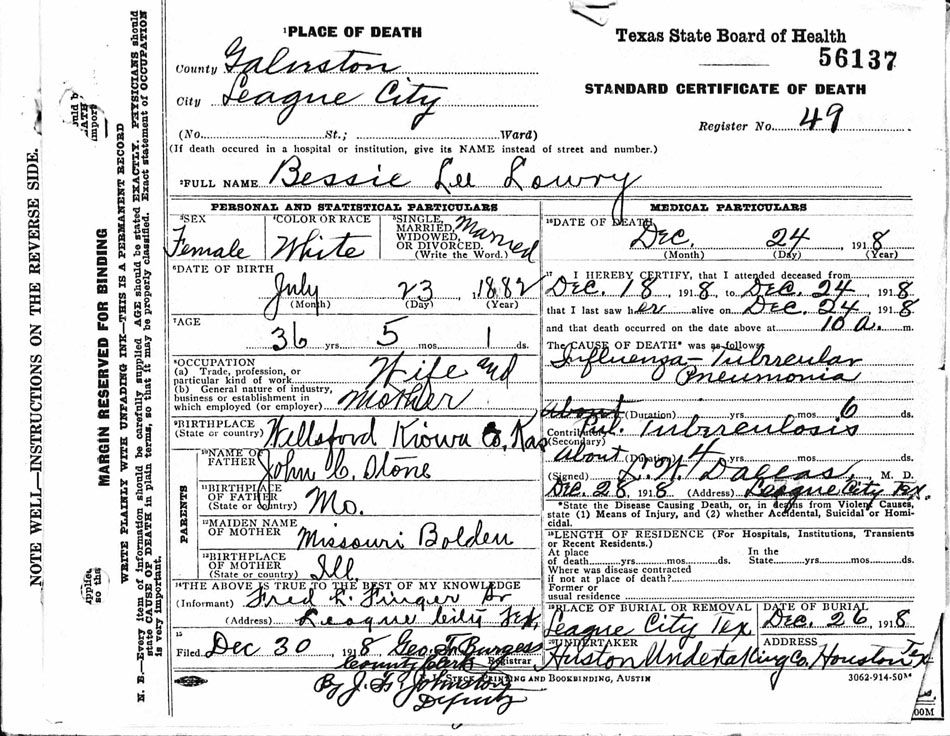 ¹PLACE OF DEATH
Texas State Board of Health
56137
County Galveston
City League City
STANDARD CERTIFICATE OF DEATH
Register No. 49
(No. St.; Ward)
(If death occured in a hospital or institution, give its NAME instead of street and number.)
²FULL NAME Bessie Lee Lowry
PERSONAL AND STATISTICAL PARTICULARS
³SEX Female
⁴COLOR OR RACE White
⁵SINGLE, MARRIED, WIDOWED, OR DIVORCED. (Write the Word.) Married
⁶DATE OF BIRTH
July 23, 1882
(Month) (Day) (Year)
⁷AGE
36 yrs. 5 mos. 1 ds.
⁸OCCUPATION
(a) Trade, profession, or
particular kind of work Wife and
(b) General nature of industry,
business or establishment in
which employed (or employer) Mother
⁹BIRTHPLACE
(State or country) Wellsford Kiowa Co. Kas
PARENTS
¹⁰NAME OF
FATHER John C. Stone
¹¹BIRTHPLACE
OF FATHER
(State or country) Mo.
¹²MAIDEN NAME
OF MOTHER Missouri Bolden
¹³BIRTHPLACE
OF MOTHER
(State or country) Ill
¹⁴THE ABOVE IS TRUE TO THE BEST OF MY KNOWLEDGE
(Informant) Fred L. Finger Sr
(Address) League City Tex.
¹⁵
Filed Dec 30 1918 Geo. F. Burgess
County Clerk Registrar
By J. F. Johnston
Deputy
MEDICAL PARTICULARS
¹⁶DATE OF DEATH
Dec. 24 1918
(Month) (Day) (Year)
¹⁷ I HEREBY CERTIFY, that I attended deceased from
Dec. 18 1918, to Dec. 24, 1918
that I last saw her alive on Dec. 24 1918
and that death occurred on the date above at 10 a. m.
The CAUSE OF DEATH* was as follows:
Influenza-Tubercular
Pneumonia
About (Duration) yrs. mos. 6 ds.
Contributory Pul. Tuberculosis
(Secondary)
About (Duration) 4 yrs. mos. ds.
(Signed) L. W. Dallas, M. D.
Dec. 28, 1918 (Address) League City Tex.
*State the Disease Causing Death, or, in deaths from Violent Causes,
state (1) Means of Injury, and (2) whether Accidental, Suicidal or Homi-
cidal.
¹⁸LENGTH OF RESIDENCE (For Hospitals, Institutions, Transients
or Recent Residents.)
At place In the
of death yrs. mos. ds. State yrs. mos. ds.
Where was disease contracted
if not at place of death?
Former or
usual residence
¹⁹PLACE OF BURIAL OR REMOVAL
League City Tex
DATE OF BURIAL
Dec. 26, 1918
²⁰UNDERTAKER ADDRESS
Huston Undertaking Co. Houston Tex
STECK PRINTING AND BOOKBINDING, AUSTIN
3062-914-50M
00M
NOTE WELL—INSTRUCTIONS ON THE REVERSE SIDE.
MARGIN RESERVED FOR BINDING
WRITE PLAINLY WITH UNFADING INK—THIS IS A PERMANENT RECORD
N. B.—Every item of information should be carefully supplied AGE should be stated EXACTLY. PHYSICIANS should
state CAUSE OF DEATH in plain terms, so that it may be properly classified. Exact statement of OCCUPATION
is very important.